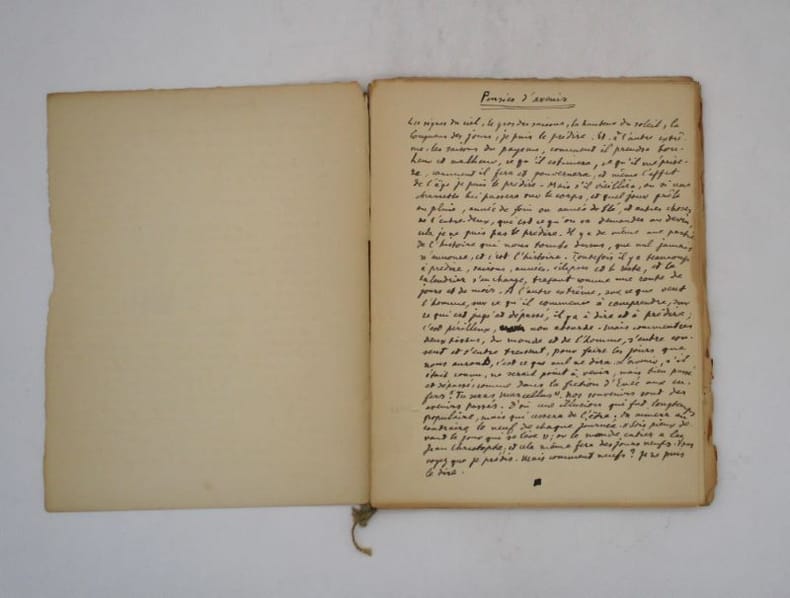 Pensées d'avenir
Les signes du ciel, le gros des saisons, la hauteur du soleil, la
longueur des jours, je puis le prédire. Et à l'autre extrê-
me, les saisons du paysan, comment il prendra bon-
heur et malheur, ce qu'il estimera, ce qu'il méprise-
ra, comment il fera et gouvernera, et même l'effet
de l'âge je puis le prédire. Mais s'il vieillira, ou si une
charrette lui passera sur le corps, et quel jour
ou pluie, année de foin ou année de blé, et autres choses
de l'entre-deux, que c'est ce qu'on va demander au devin,
cela je ne puis pas le prédire. Il y a de même une partie
de l'histoire qui nous tombe dessus, que nul jamais
n'annonce, et c'est l'histoire. Toutefois il y a beaucoup
à prédire, saisons, années, éclipses et le reste, et le
calendrier s'en charge, traçant comme une route de
jours et de mois. A l'autre extrême, sur ce que veut
l'homme, sur ce qu'il commence à comprendre, sur
ce qui est jugé et dépassé, il y a à dire et à prédire;
c'est périlleux, non absurde. Mais comment ces
deux tissus, du monde et de l'homme, s'entre
et s'entre tressent, pour faire les jours que
nous aurons, c'est ce que nul ne dira. L'avenir, s'il
était connu, ne serait point à venir, mais bien passé
et dépassé; comme dans la fiction d'Enée aux en-
fers "Tu seras Marcellus". Nos souvenirs sont des
avenirs passés. D'où une illusion qui fut longtemps
populaire, mais qui cessera de l'être. On aimera au
contraire le neuf de chaque journée. "Sois pieux de-
vant le jour qui se lève"; or le monde entier a lu
Jean Christophe, et cela même fera des jours neufs. Vous
voyez que je prédis. Mais comment neufs? Je ne puis
le dire.